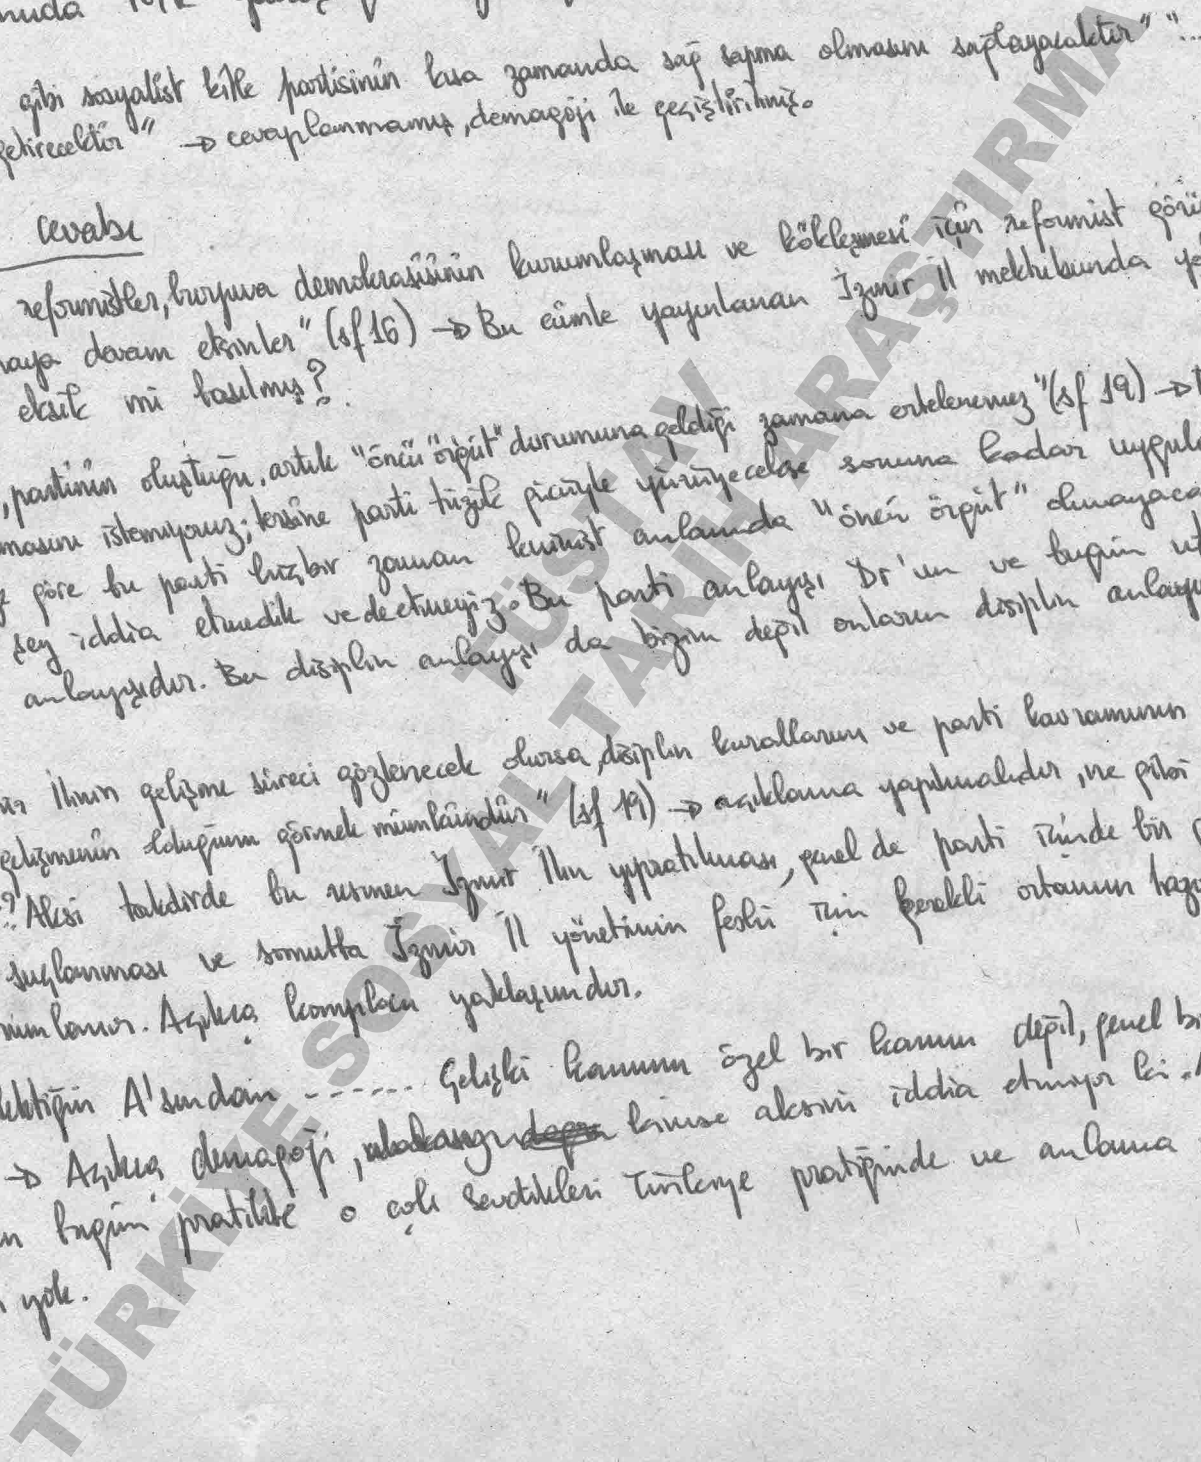 gibi sosyalist kitle partisinin kısa zamanda sağ sapma olmasını sağlayacaktır" "...
getirecektir" → cevaplanmamış, demagoji ile geçiştirilmiş.
Cevabı
reformistler, burjuva demokrasisinin kurumlaşması ve kökleşmesi için reformist görü
maya devam etsinler" (sf 16) → Bu cümle yayınlanan İzmir İl mektubunda yo
eksik mi basılmış?
, partinin oluştuğu, artık "öncü örgüt" durumuna geldiği zamana ertelenemez" (sf 19) →
masını istemiyoruz; tersine parti tüzük gücüyle yürüyecekse sonuna kadar uygula
göre bu parti hiçbir zaman leninist anlamda "öncü örgüt" olmayaca
şey iddia etmedik ve de etmeyiz. Bu parti anlayışı Dr'un ve bugün
anlayışıdır. Bu disiplin anlayışı da bizim değil onların disiplin anlayışı
İlinin gelişme süreci gözlenecek olursa, disiplin kurallarının ve parti kavramının
gelişmenin olduğunu görmek mümkündür" (sf 19) → açıklama yapılmalıdır, ne gibi
? Aksi takdirde bu resmen İzmir İlin yıpratılması, genel de parti içinde bir
suçlanması ve somutta İzmir İl yönetimin feshi için gerekli ortamın hazı
Açıkça komplocu yaklaşımdır.
A'sından ------ Çelişki kanunu özel bir kanun değil, genel bi
→ Açıkça demagoji, kimse aksini iddia etmiyor ki.
bugün pratikte o çok sevdikleri Türkiye pratiğinde ve anlama
yok.
TÜSTAV
TÜRKİYE SOSYAL TARİH ARAŞTIRMA